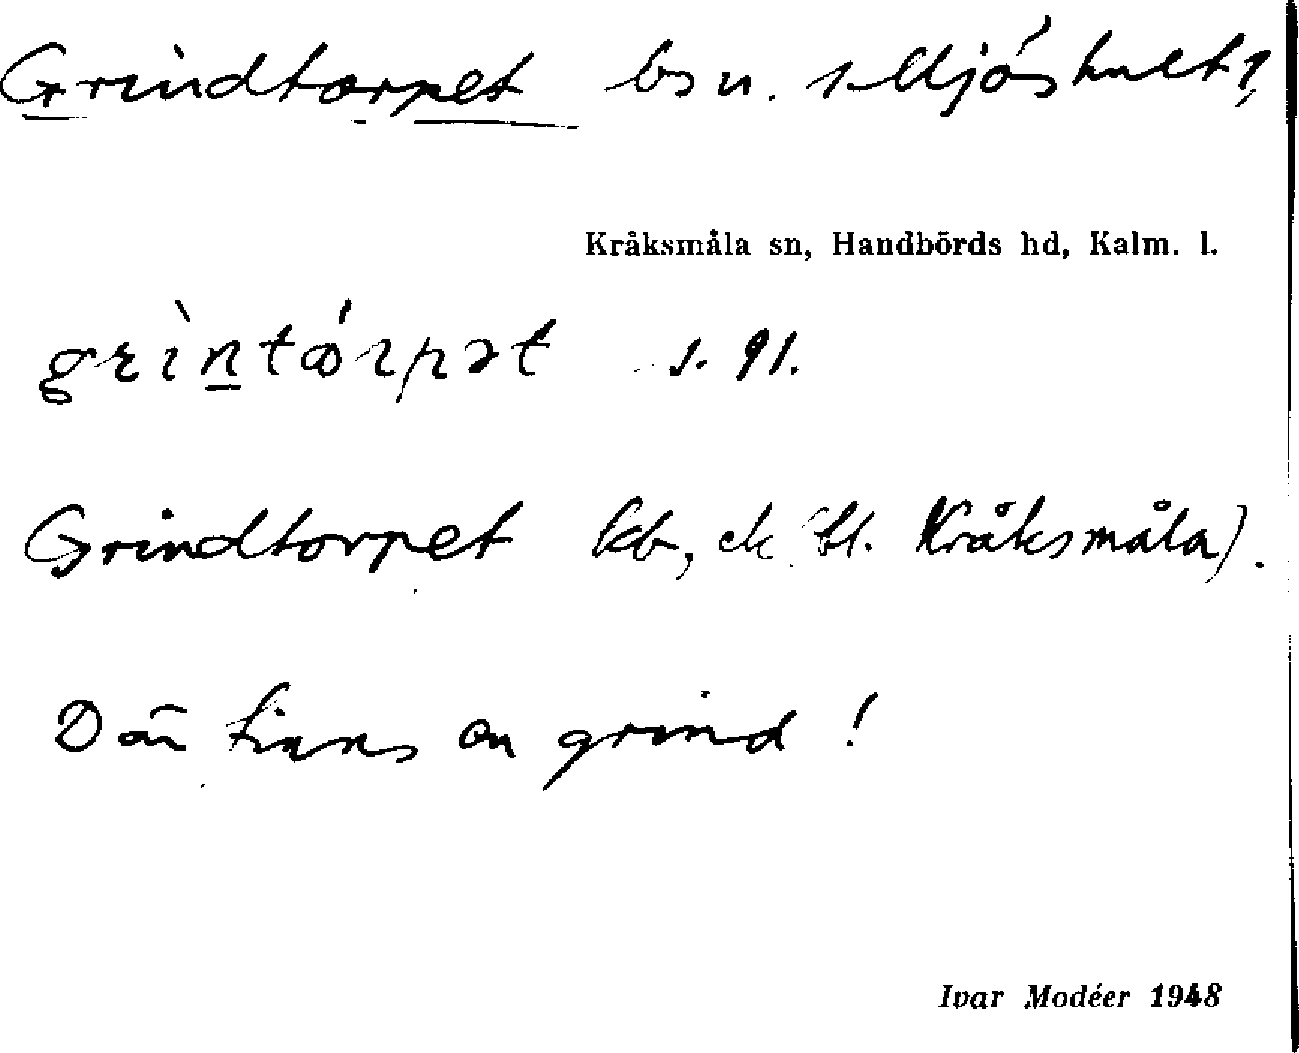 Grindtorpet bs u. 1 Mjöshult 1,
Kråksmåla sn, Handbörds hd, Kalm. l.
grìntórpət s. 91.
Grindtorpet kb, ek bl. Kråksmåla).
Där finns en grind!
Ivar Modéer 1948